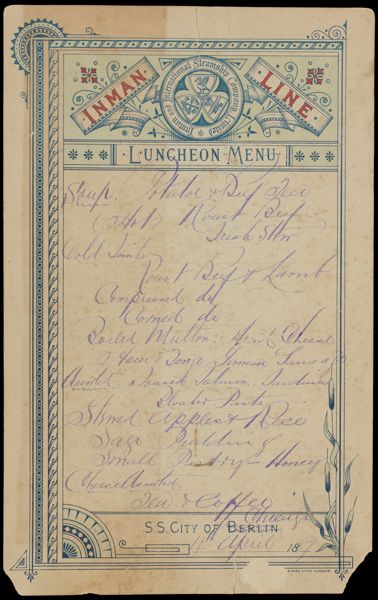 INMAN LINE
Inman and International Steamship Company Limited
LUNCHEON MENU
Soup. & Beef Tea
Hot Roast Beef
Irish Stew
Cold Joints
Roast Beef & Lamb
Compressed do
Corned do
Boiled Mutton Head Cheese
Ham & Tongue German Sausage
Salmon. Sardines
Stewed Apples & Rice
Sago Pudding
Small Pastry Honey
Cheese
Tea & Coffee
S.S. CITY OF BERLIN
4th April 18